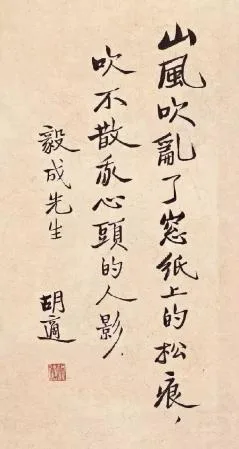 山風吹亂了窓紙上的松痕，
吹不散我心頭的人影.
毅成先生
胡適